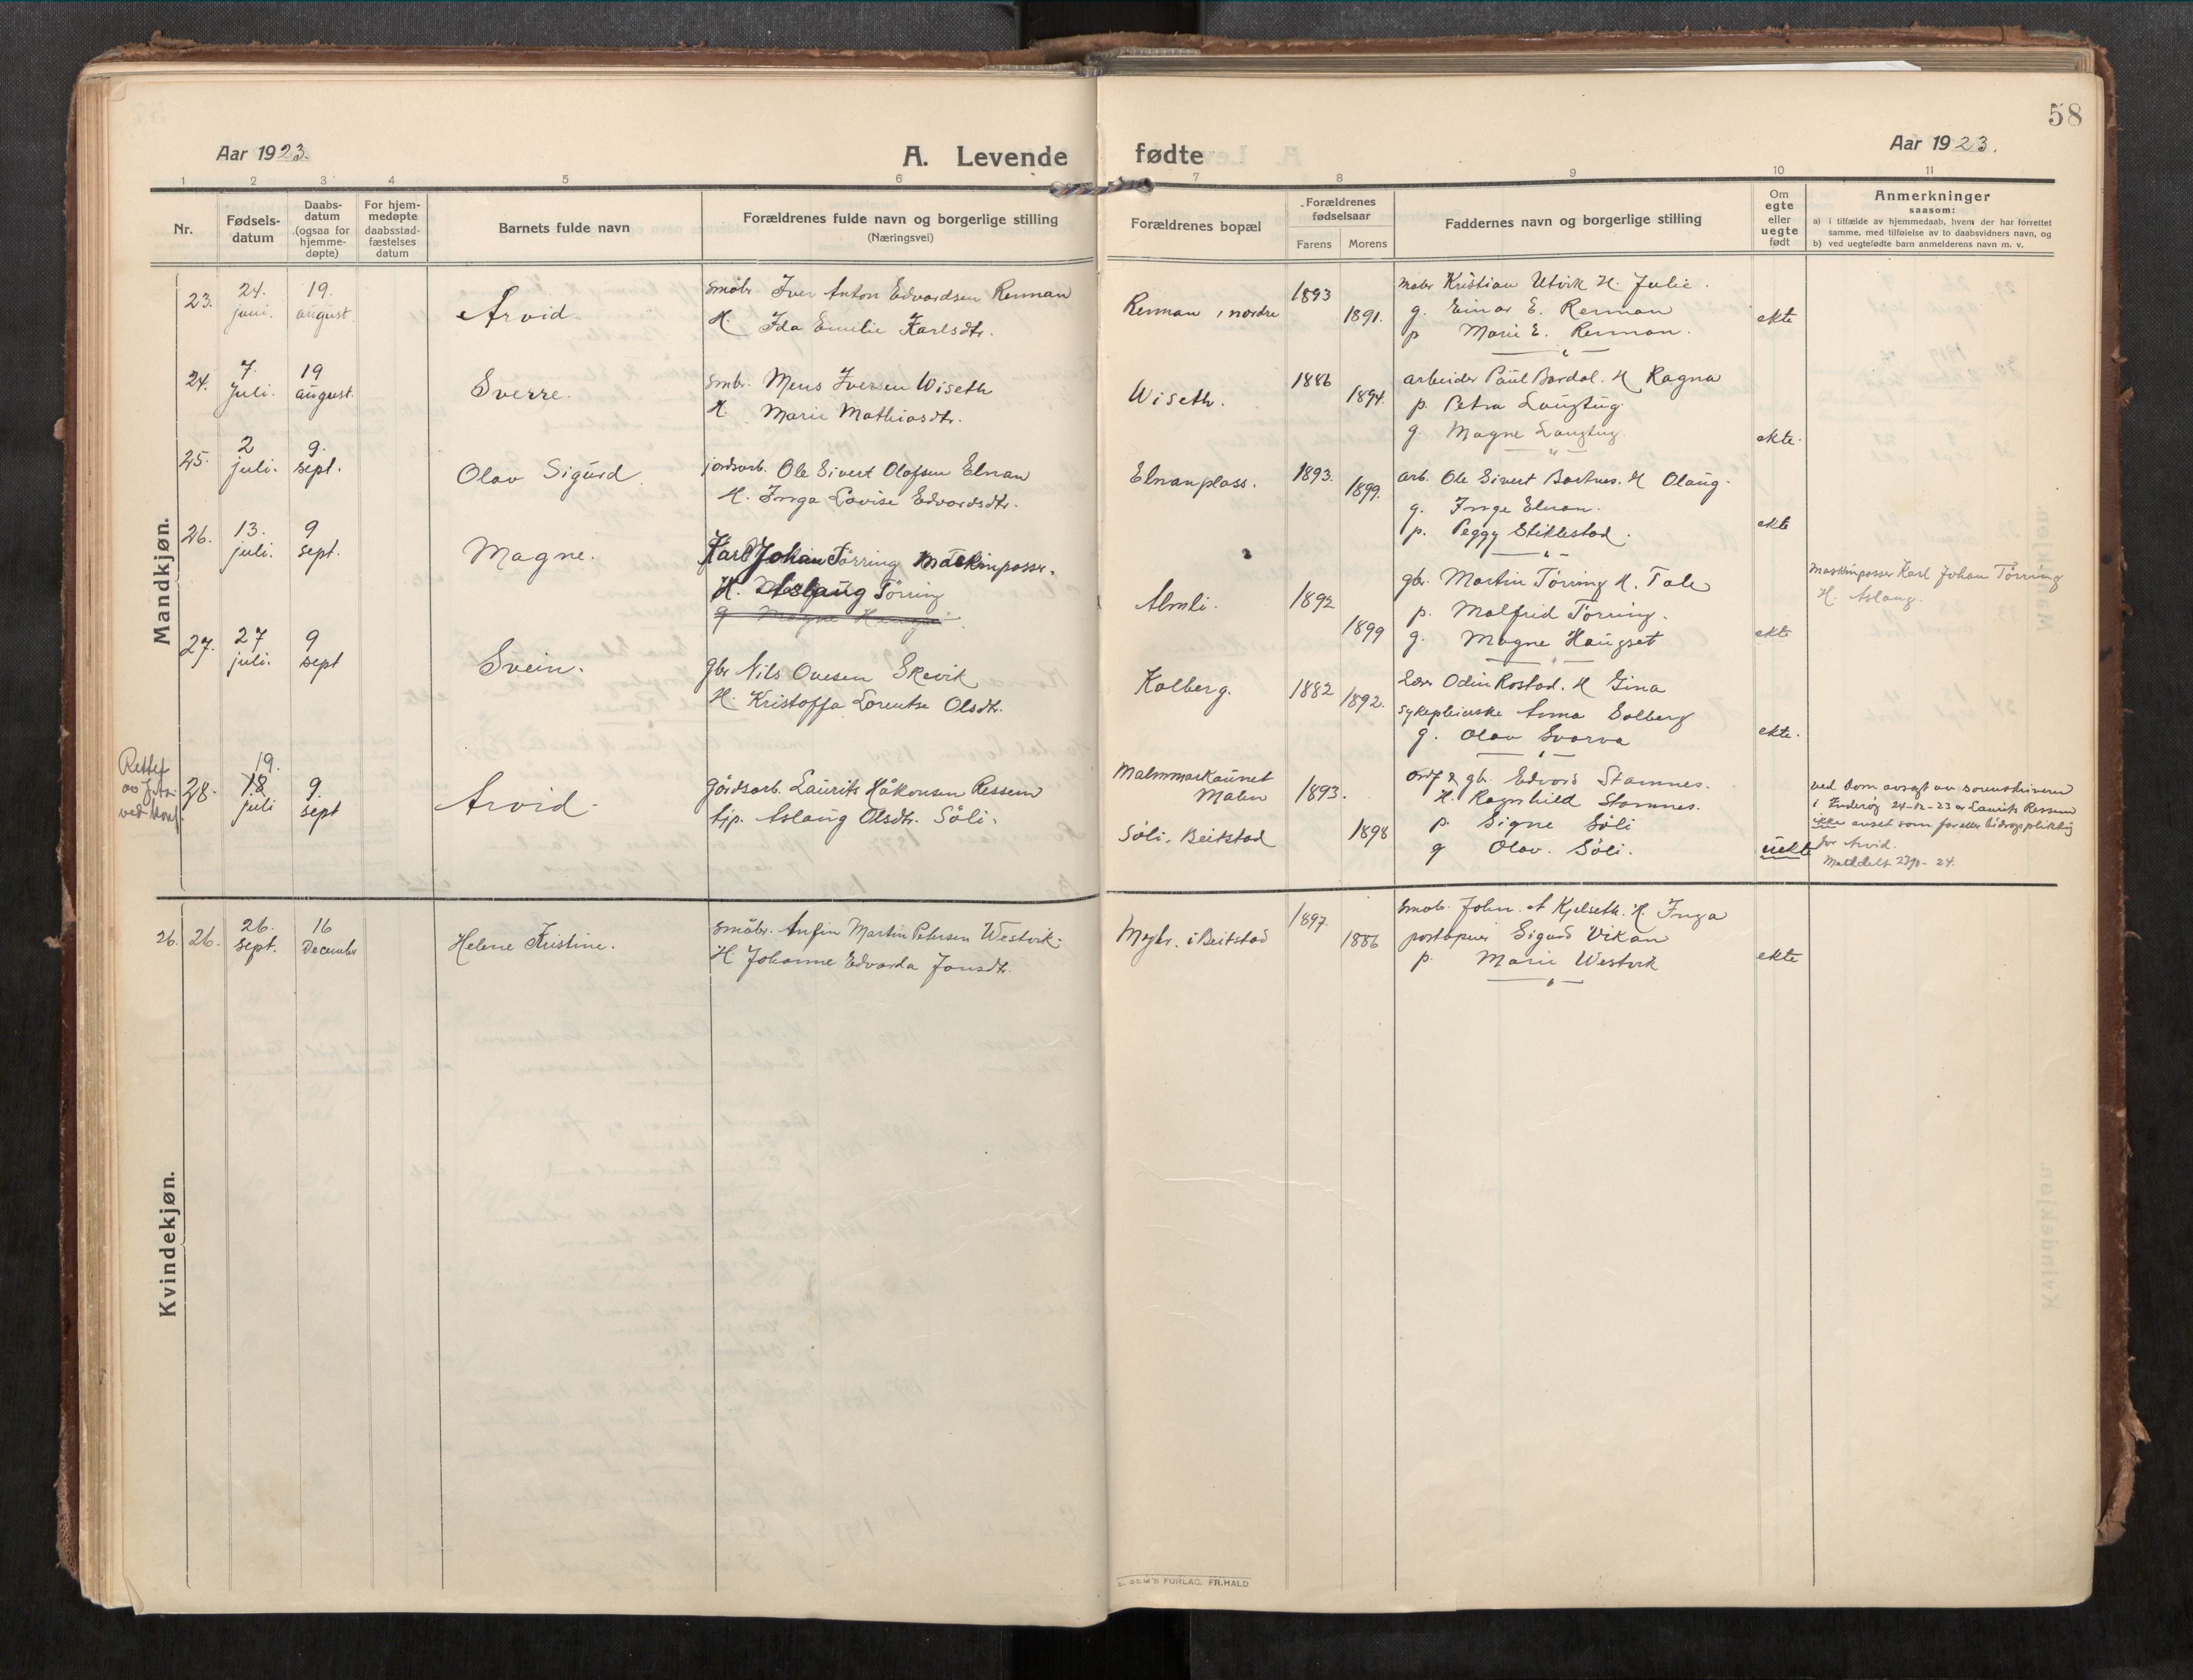 58
Aar 1923.
A. Levende fødte
Aar 1923.
1 2 3 4 5 6 7 8 9 10 11
Nr.
Fødsels-
datum
Daabs-
datum
(ogsaa for
hjemme-
døpte)
For hjem-
medøpte
daabsstad-
fæstelses
datum
Barnets fulde navn
Forældrenes fulde navn og borgerlige stilling
(Næringsvei)
Forældrenes bopæl
Forældrenes
fødselsaar
Farens Morens
Faddernes navn og borgerlige stilling
Om
egte
eller
uegte
født
Anmerkninger
saasom:
a) i tilfælde av hjemmedaab, hvem der har forrettet
samme, med tilføielse av to daabsvidners navn, og
b) ved uegtefødte barn anmelderens navn m. v.
Mandkjøn.
23.
24.
juni.
19.
august.
Arvid.
småbr. Iver Anton Edvardsen Renman
H. Ida Emilie Karlsdtr.
Renman, nordre
1893
1891.
Kristian Utvik H. Julie.
g. Einar E. Renman
p Marie E. Renman.
ekte
24.
7.
Juli.
19
august.
Sverre.
smbr. Meus Iversen Wiseth
H. Marie Mathiasdtr.
Wiseth.
1886
1894.
arbeider Paul Bardal. H Ragna
p. Petra Langtug
g. Magne Langtug
ekte.
25.
2
juli.
9.
sept.
Olav Sigurd.
jordarb. Ole Sivert Olafsen Elnan
H. Inga Lovise Edvardsdtr.
Elnanplass.
1893.
1899.
arb. Ole Sivert Bartnes. H Olaug.
g. Inge Elnan.
p. Peggy Stiklestad.
ekte
26.
13.
juli.
9
sept.
Magne.
Karl Johan Tørring maskinpasser.
H. Aslaug Tørring
g Magne Haugset
Almli.
1892
1899
gbr. Martin Tørring H. Tale
p. Malfrid Tørring.
g. Magne Haugset
ekte
Maskinpasser Karl Johan Tørring
H. Aslaug.
27.
27
juli.
9
sept
Svein.
gbr Nils Ovesen Skevik
H. Kristoffa Lorentse Olsdtr.
Kolberg.
1882
1892.
Lær Odin Rostad. H Gina
sykepleierske Anna Solberg
g. Olav Svarva
ekte.
Rettet
av
ved
28.
19.
18
juli
9.
sept
Arvid.
gårdsarb. Laurits Håkonsen Ressem
tjp. Aslaug Olsdtr. Søli.
Malm
Søli, Beitstad
1893.
1898
ordf & gbr. Edvard Stamnes.
H. Ragnhild Stamnes.
p. Signe Søli
g Olav. Søli.
uekte
ved dom avsagt av sorenskriveren
i Inderøy 24-12-23 er Laurits Ressem
ikke anset som far eller bidragspliktig
for Arvid.
Kvindekjøn.
26.
26.
26.
sept.
16
December
Helene Kristine.
småbr. Anfin Martin Petersen Westvik.
H. Johanne Edvarda Jonsdtr.
i Beitstad
1897.
1886
småb. John. A Kjelseth. H. Inga
poståpner Sigurd Vikan
p. Marie Westvik
ekte
E. SEM'S FORLAG. FR.HALD